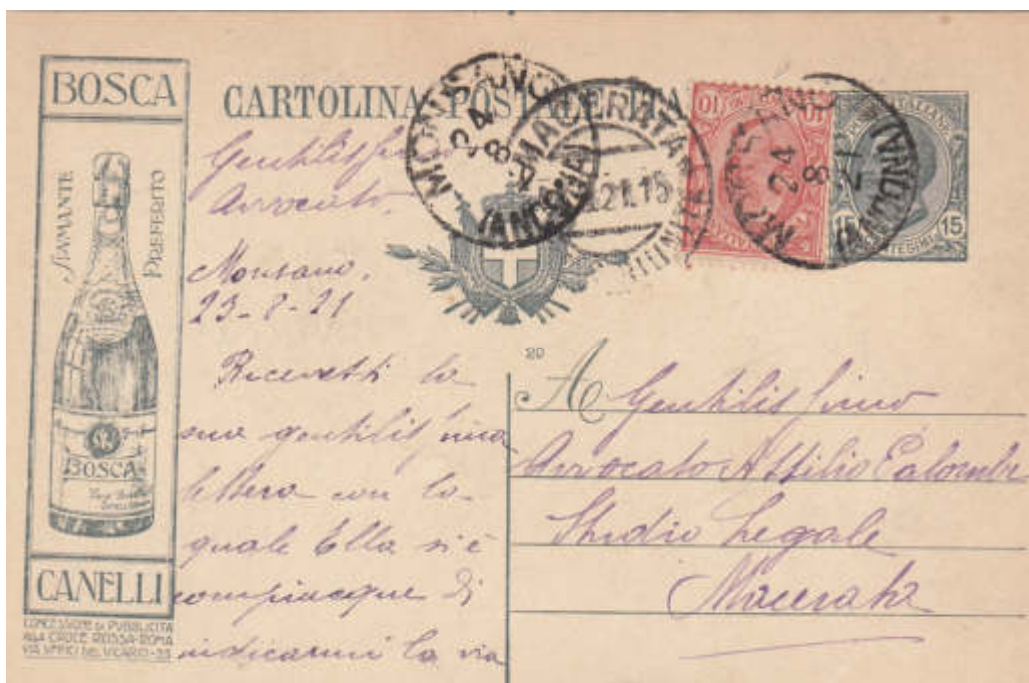 BOSCA
SPUMANTE
PREFERITO
BOSCA
CANELLI
CONCESSIONE DI PUBBLICITÀ
ALLA CROCE ROSSA-ROMA
VIA UFFICI DEL VICARIO-33
CARTOLINA POSTALE
MONSANO
24
8
21
(ANCONA)
MACERATA
21.15
10
10
MONSANO
24
8
21
(ANCONA)
15
15
CENTESIMI
Gentilissimo
Avvocato.
Monsano,
23-8-21
Ricevetti la
sua gentilissima
lettera con la
quale Ella si è
compiacque di
indicarmi la via
20
A Gentilissimo
Avvocato Attilio
Studio Legale
Macerata